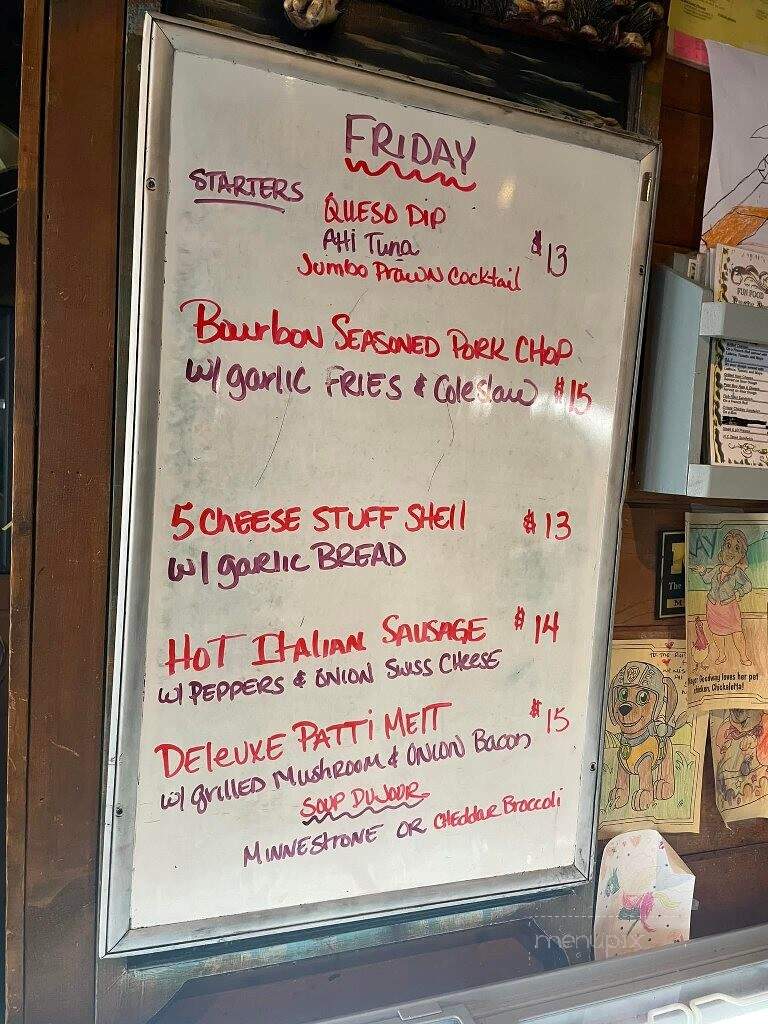 FRIDAY
STARTERS
QUESO DIP
AHi Tuna
$13
Jumbo PRAWN Cocktail
Bourbon SEASONED PORK CHOP
w/ garlic FRIES & Coleslaw $15
5 CHEESE STUFF SHEll $13
w/ garlic BREAD
HOT ITALIAN SAUSAGE $14
w/ PEPPERS & ONION SWISS CHEESE
DELEUXE PATTi MELT $15
w/ GRILLED MUSHROOM & ONION Bacon
SOUP DUJOOR
MINNESTRONE OR CHEDDAR BROCCOLI
FUN FOOD
The
loves her pet
chicken, Chickaletta!
menupix